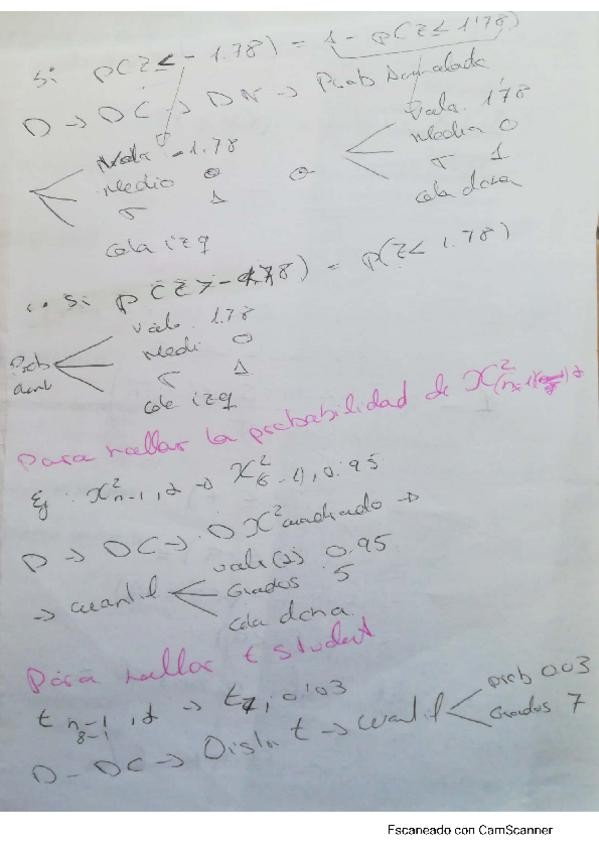 Si P(Z ≤ -1.78) = 1 - P(Z ≤ 1'78)
D → DC → DN → Prob Acumulada
Valor -1.78
Media 0
σ 1
cola izq
o
Valor 1'78
Media 0
σ 1
cola derecha
Si P(Z > -1.78) = P(Z < 1.78)
Prob acum
Valor 1.78
Medi 0
σ 1
cola izq
Para hallar la probabilidad de X²
Ej: X²n-1, α → X²(6-1), 0.95
D → DC → D X² cuadrado →
→ cuantil
valor(s) 0.95
Grados 5
cola derecha
Para hallar t student
t n-1, α → t7, 0'03
8-1
D - DC → Distr t → cuantil
prob 0.03
Grados 7
Escaneado con CamScanner